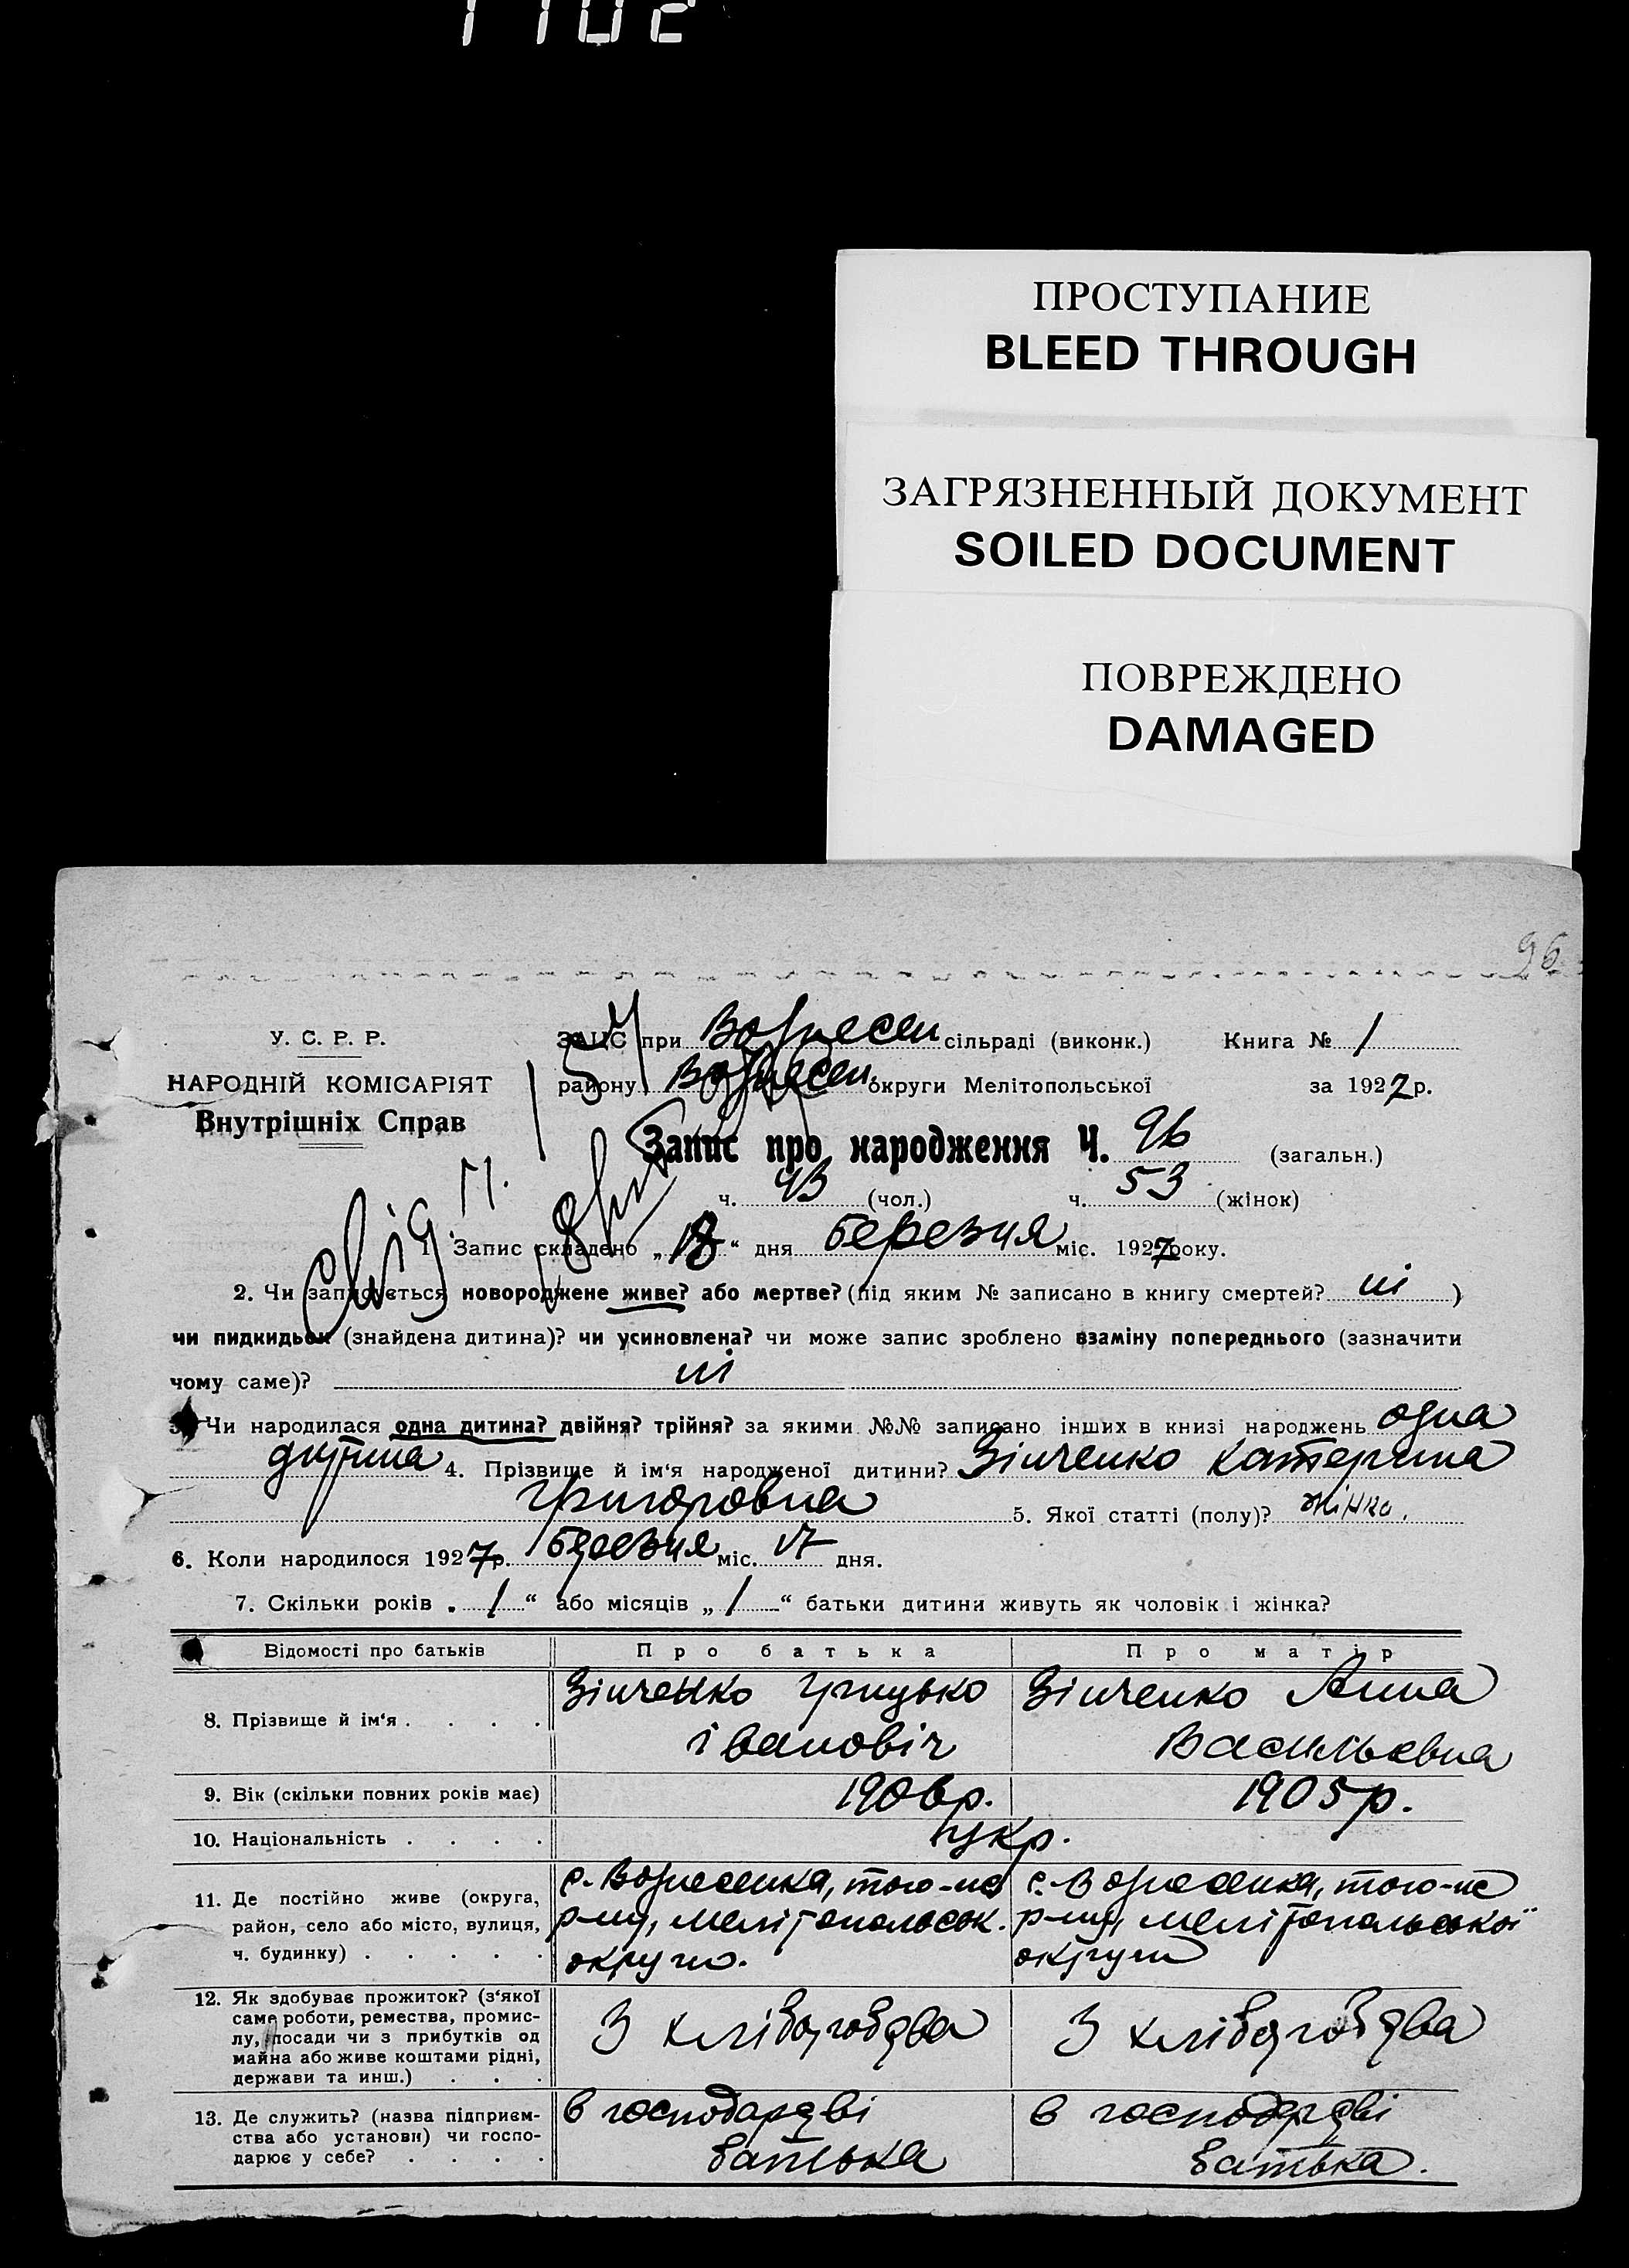 1102
ПРОСТУПАНИЕ
BLEED THROUGH
ЗАГРЯЗНЕННЫЙ ДОКУМЕНТ
SOILED DOCUMENT
ПОВРЕЖДЕНО
DAMAGED
96
У. С. Р. Р.
НАРОДНІЙ КОМІСАРІЯТ
Внутрішніх Справ
ЗАЦС при Вознесен сільраді (виконк.) Книга № 1
району Вознесен округи Мелітопольської за 1927 р.
Запис про народження Ч. 96 (загальн.)
ч. 43 (чол.) ч. 53 (жінок)
1. Запис складено „18“ дня березня міс. 1927 року.
2. Чи записується новороджене живе? або мертве? (під яким № записано в книгу смертей? ні )
чи пидкидьок (знайдена дитина)? чи усиновлена? чи може запис зроблено взаміну попереднього (зазначити
чому саме)? ні
3. Чи народилася одна дитина? двійня? трійня? за якими №№ записано інших в книзі народжень одна
дитина 4. Прізвище й ім'я народженої дитини? Зінченко Катерина
Григоровна 5. Якої статті (полу)? жінка.
6. Коли народилося 1927 р. березня міс. 17 дня.
7. Скільки років „ 1 “ або місяців „ 1 “ батьки дитини живуть як чоловік і жінка?
Відомості про батьків Про батька Про матір
8. Прізвище й ім'я . . . . Зінченко Грицько Івановіч Зінченко Анна Васильевна
9. Вік (скільки повних років має) 1906 р. 1905 р.
10. Національність . . . . укр.
11. Де постійно живе (округа, с. Вознесенка, того-ж с. Вознесенка, того-ж
район, село або місто, вулиця, р-ну, Мелітопольськ. р-ну, Мелітопольської
ч. будинку) . . . . . округи. округи
12. Як здобуває прожиток? (з'якої
саме роботи, ремества, промис-
лу, посади чи з прибутків од З хліборобства З хліборобства
майна або живе коштами рідні,
держави та инш.) . . .
13. Де служить? (назва підприєм- в господарстві в господарстві
ства або установи) чи госпо-
дарює у себе? . . . . батька батька.